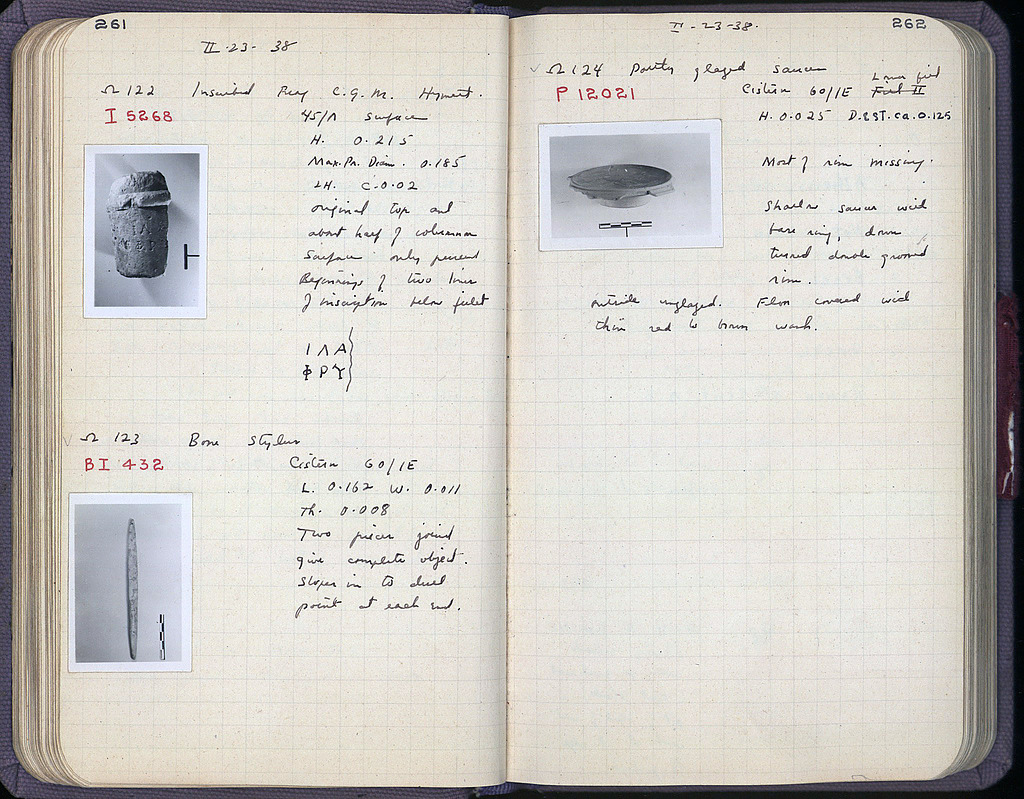 261
II-23-38
Ω 122 Inscribed Frag C.G.M. Hymett.
I 5268
45/Λ Surface
H. 0.215
Max. Pr. Diam. 0.185
LH. c.0.02
original top and
about half of columnar
surface only preserved
Beginnings of two lines
of inscription below fillet
ΙΛΑ
ΦΡΥ
Ω 123 Bone Stylus
BI 432
Cistern 60/ΙΕ
L. 0.162 W. 0.011
Th. 0.008
Two pieces joined
give complete object.
Slopes in to dull
point at each end.
262
II-23-38.
Ω 124 Partly glazed saucer
P 12021
Lower fill
Cistern 60/ΙΕ
H. 0.025 D. EST. ca. 0.125
Most of rim missing.
Shallow saucer with
base ring, down
turned double grooved
rim.
outside unglazed. Floor covered with
thin red to brown wash.